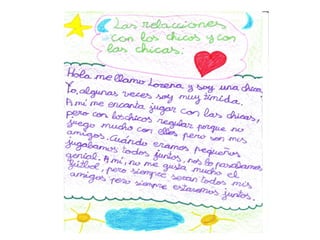 Las relacciones
con los chicos y con
las chicas:
Hola me llamo Lorena y soy una chica.
Yo, algunas veces soy muy tímida.
A mi me encanta jugar con las chicas,
pero con los chicos regular porque no
juego mucho con ellos pero son mis
amigos. Cuándo eramos pequeños
jugabamos todos juntos, nos lo pasabamos
genial. A mí, no me gusta mucho el
fútbol, pero siempre seran todos mis
amigos pero siempre estaremos juntos.